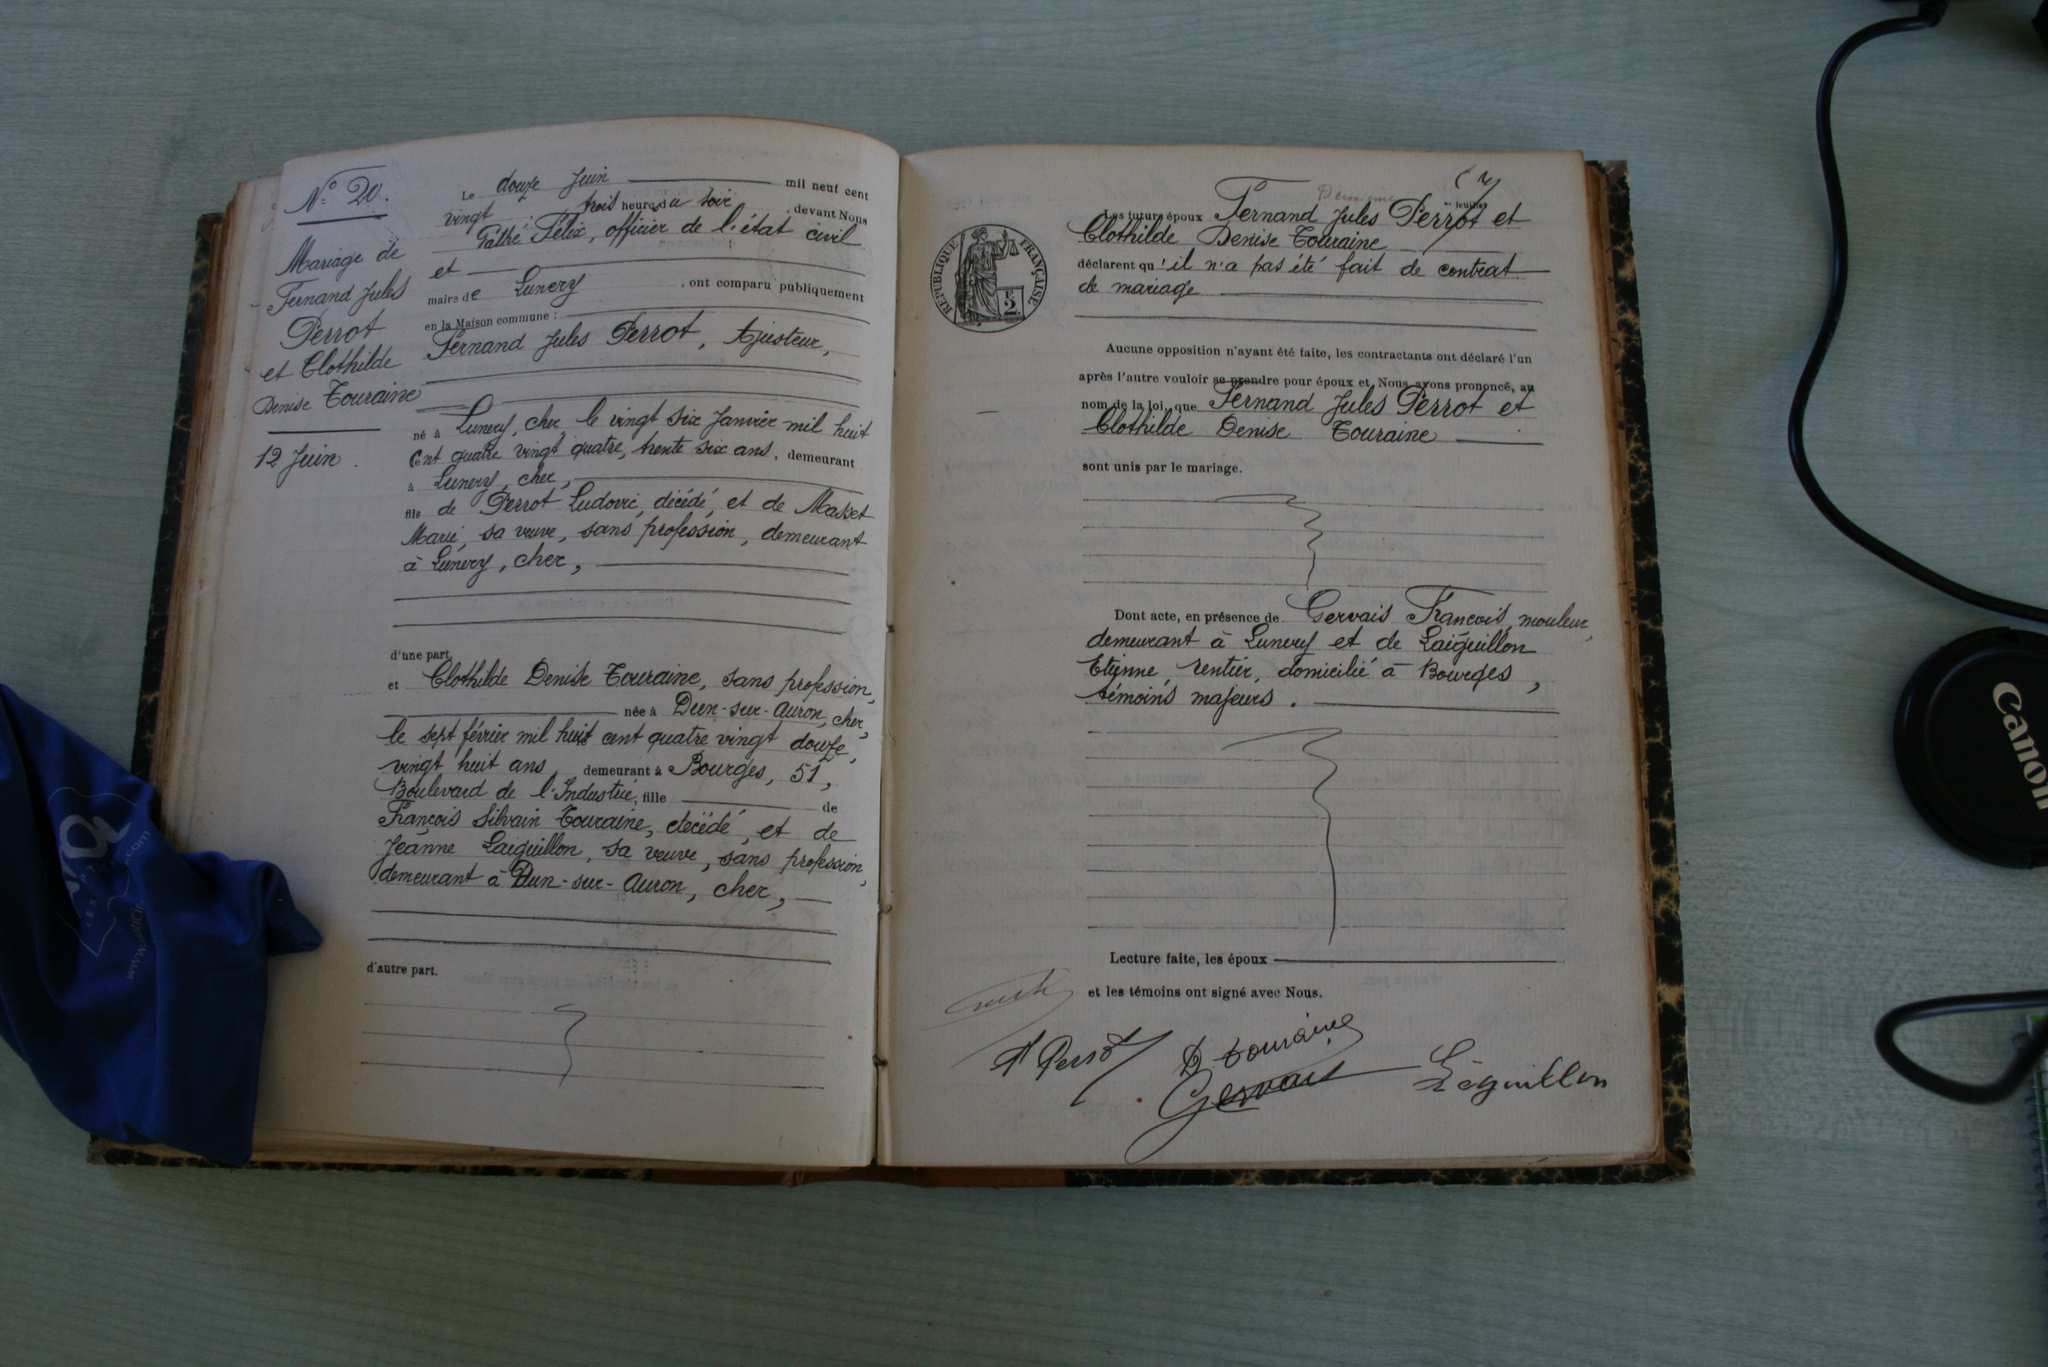 N° 20.
Mariage de
Fernand Jules
Perrot
et Clothilde
Denise Touraine
12 Juin.
Le douze Juin mil neuf cent
vingt trois heures du soir, devant Nous
Félix, officier de l'état civil
et
maire de Lunery, ont comparu publiquement
en la Maison commune:
Fernand Jules Perrot, Ajusteur,
né à Lunery, cher, le vingt six Janvier mil huit
Cent quatre vingt quatre, trente six ans, demeurant
à Lunery, cher,
fils de Perrot Ludovic, décédé, et de Masset
Marie, sa veuve, sans profession, demeurant
à Lunery, cher,
d'une part,
et Clothilde Denise Touraine, sans profession,
née à Dun-sur-Auron, cher,
le sept février mil huit cent quatre vingt douze,
vingt huit ans, demeurant à Bourges, 51,
Boulevard de l'Industrie, fille de
François Silvain Touraine, décédé, et de
Jeanne Laiguillon, sa veuve, sans profession,
demeurant à Dun-sur-Auron, cher,
d'autre part.
RÉPUBLIQUE FRANÇAISE
2
Les futurs époux Fernand Jules Perrot et
Clothilde Denise Touraine
déclarent qu'il n'a pas été fait de contrat
de mariage
Aucune opposition n'ayant été faite, les contractants ont déclaré l'un
après l'autre vouloir se prendre pour époux et Nous avons prononcé, au
nom de la loi, que Fernand Jules Perrot et
Clothilde Denise Touraine
sont unis par le mariage.
Dont acte, en présence de Gervais François, mouleur,
demeurant à Lunery et de Laiguillon
Etienne, rentier, domicilié à Bourges,
témoins majeurs.
Lecture faite, les époux
et les témoins ont signé avec Nous.
Perrot D Touraine
Gervais Léguillon
Canon